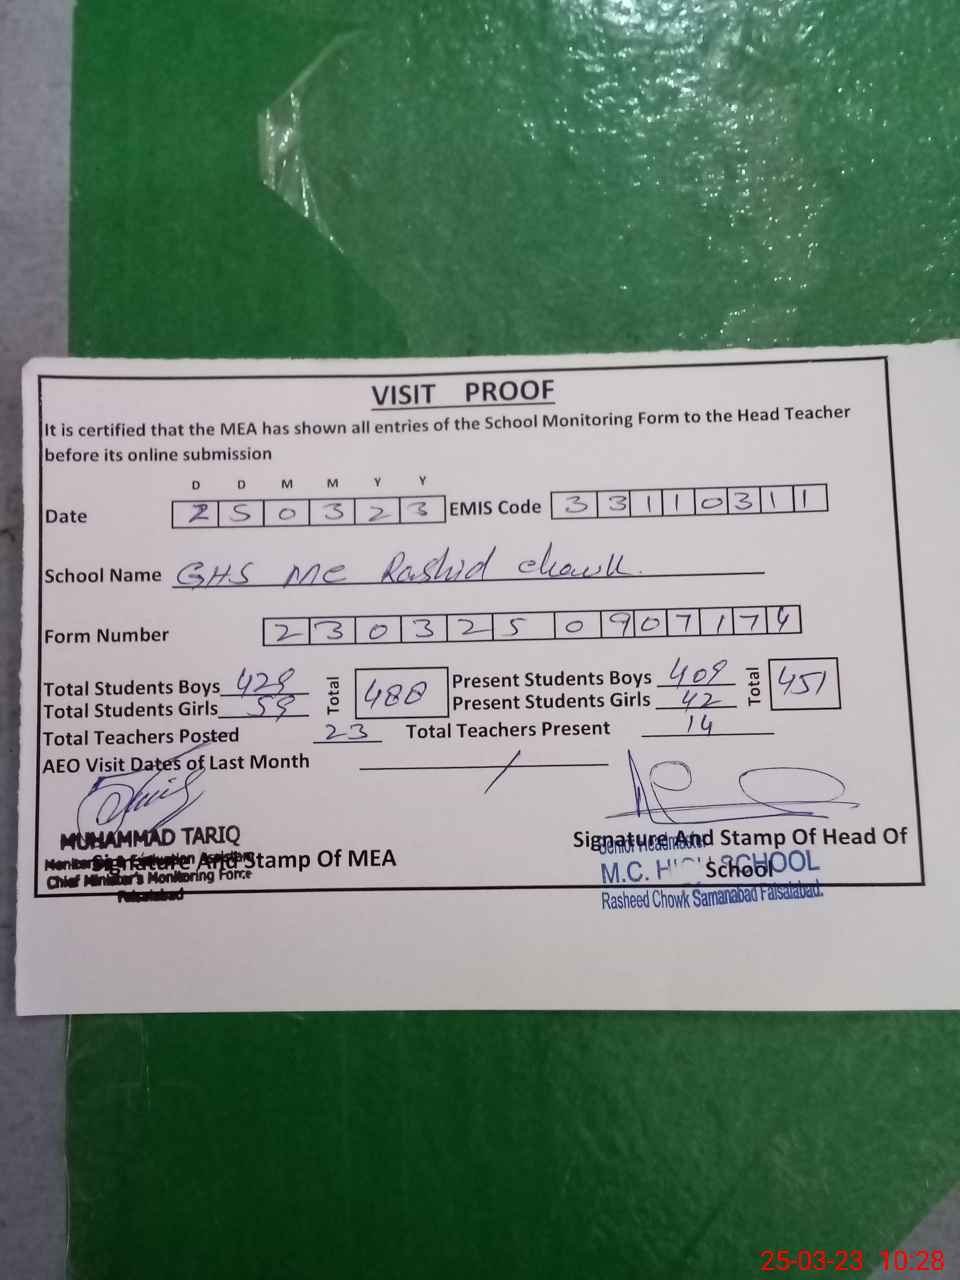 VISIT PROOF
It is certified that the MEA has shown all entries of the School Monitoring Form to the Head Teacher
before its online submission
D D M M Y Y
Date 2 5 0 3 2 3 EMIS Code 3 3 1 1 0 3 1 1
School Name GHS MC Rashid chowk.
Form Number 2 3 0 3 2 5 0 9 0 7 1 7 4
Total Students Boys 429 Total 488 Present Students Boys 409 Total 451
Total Students Girls 59 Present Students Girls 42
Total Teachers Posted 23 Total Teachers Present 14
AEO Visit Dates of Last Month
MUHAMMAD TARIQ
Monitoring & Evaluation Assistant
Signature And Stamp Of MEA
Chief Minister's Monitoring Force
Faisalabad
Signature And Stamp Of Head Of
School
Senior Headmaster
M.C. HIGH SCHOOL
Rasheed Chowk Samanabad Faisalabad.
25-03-23 10:28